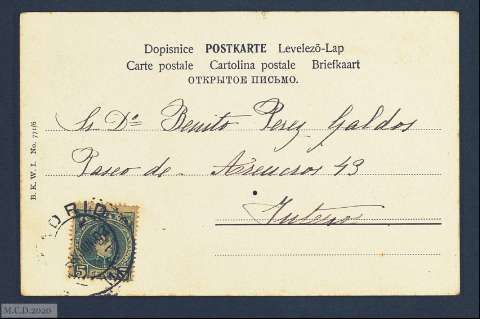 Dopisnice POSTKARTE Levelező-Lap
Carte postale Cartolina postale Briefkaart
ОТКРЫТОЕ ПИСЬМО.
Sr. Dn. Benito Perez Galdos
Paseo de Areneros 43
B. K. W. I. No. 771/6
DRID
15
M.C.D.2020